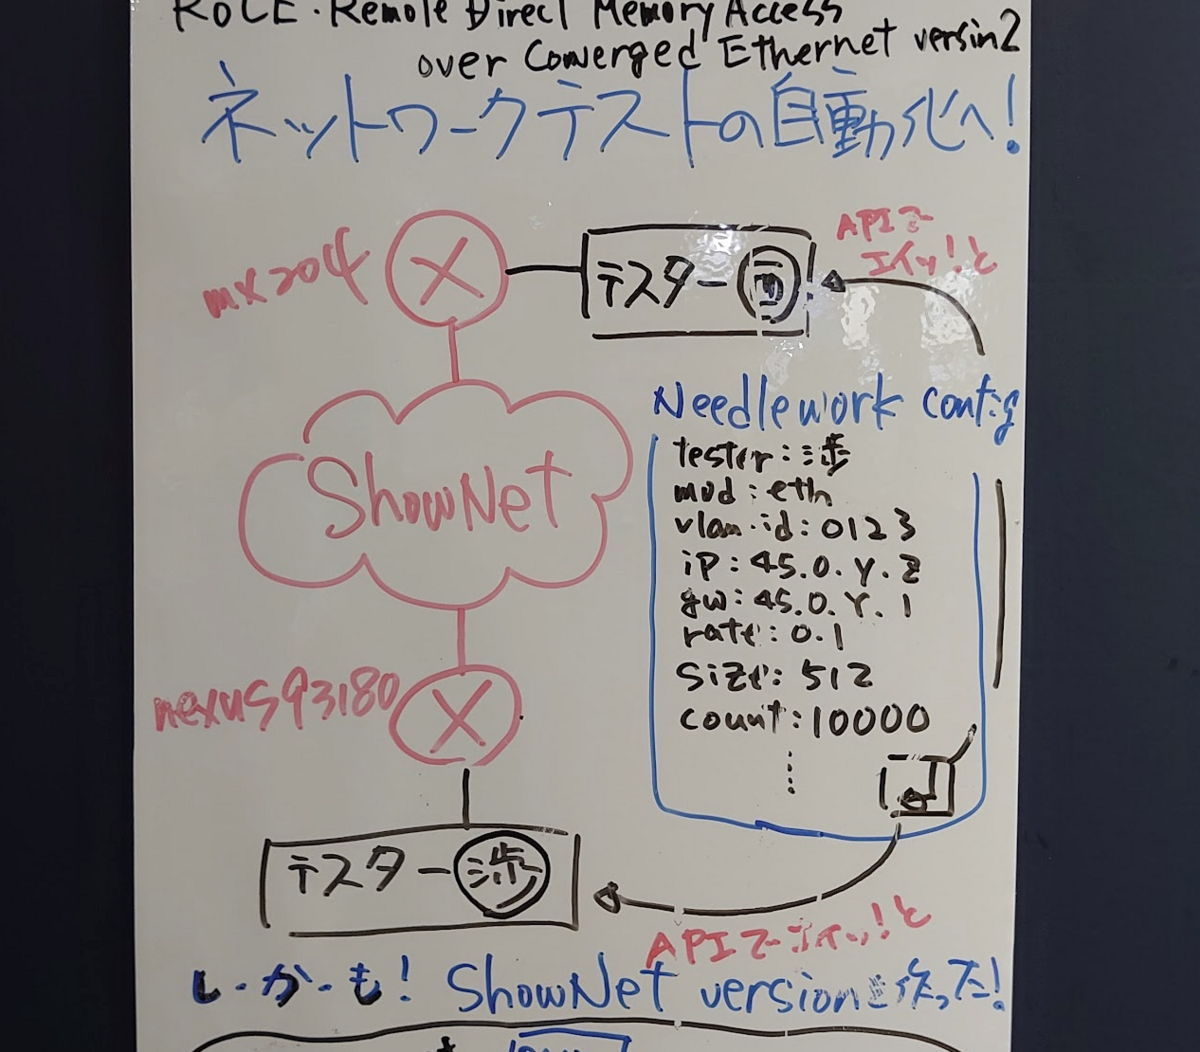 RoCE・Remote Direct Memory Access
over Converged Ethernet versin2
ネットワークテストの自動化へ!
mx204
テスター
APIで
エイッ!と
ShowNet
Needlework config
tester:渉
mod:eth
vlan.id:0123
ip:45.0.Y.Z
gw:45.0.Y.1
rate:0.1
size:512
count:10000
nexus93180
テスター渉
APIでエイッ!と
し・か・も! ShowNet versionを作った!